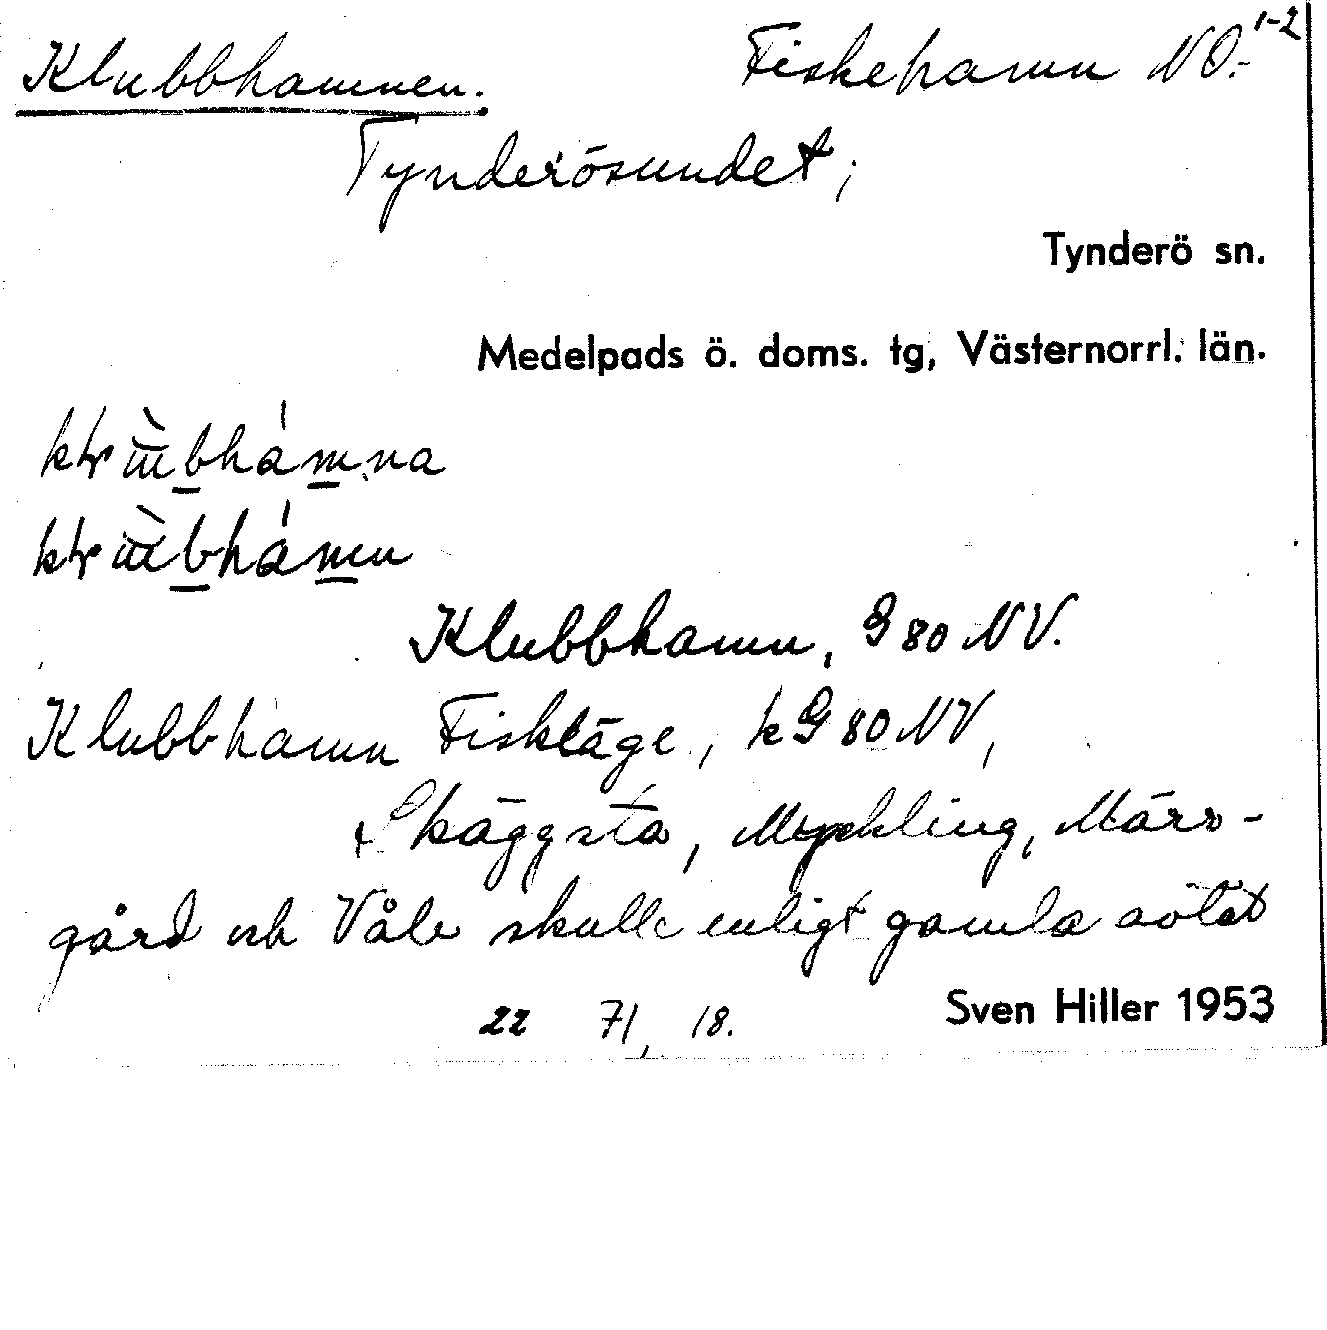 Klubbhamnen. Fiskehamn NO.- 1-2
Tynderösundet;
Tynderö sn.
Medelpads ö. doms. tg, Västernorrl. län.
Klubbhamn, G 80 NV.
Klubbhamn Fiskläge, kG 80 NV,
Skäggsta, Myckling, Märr-
gård och Våle skulle enligt gamla
22 71, 18. Sven Hiller 1953